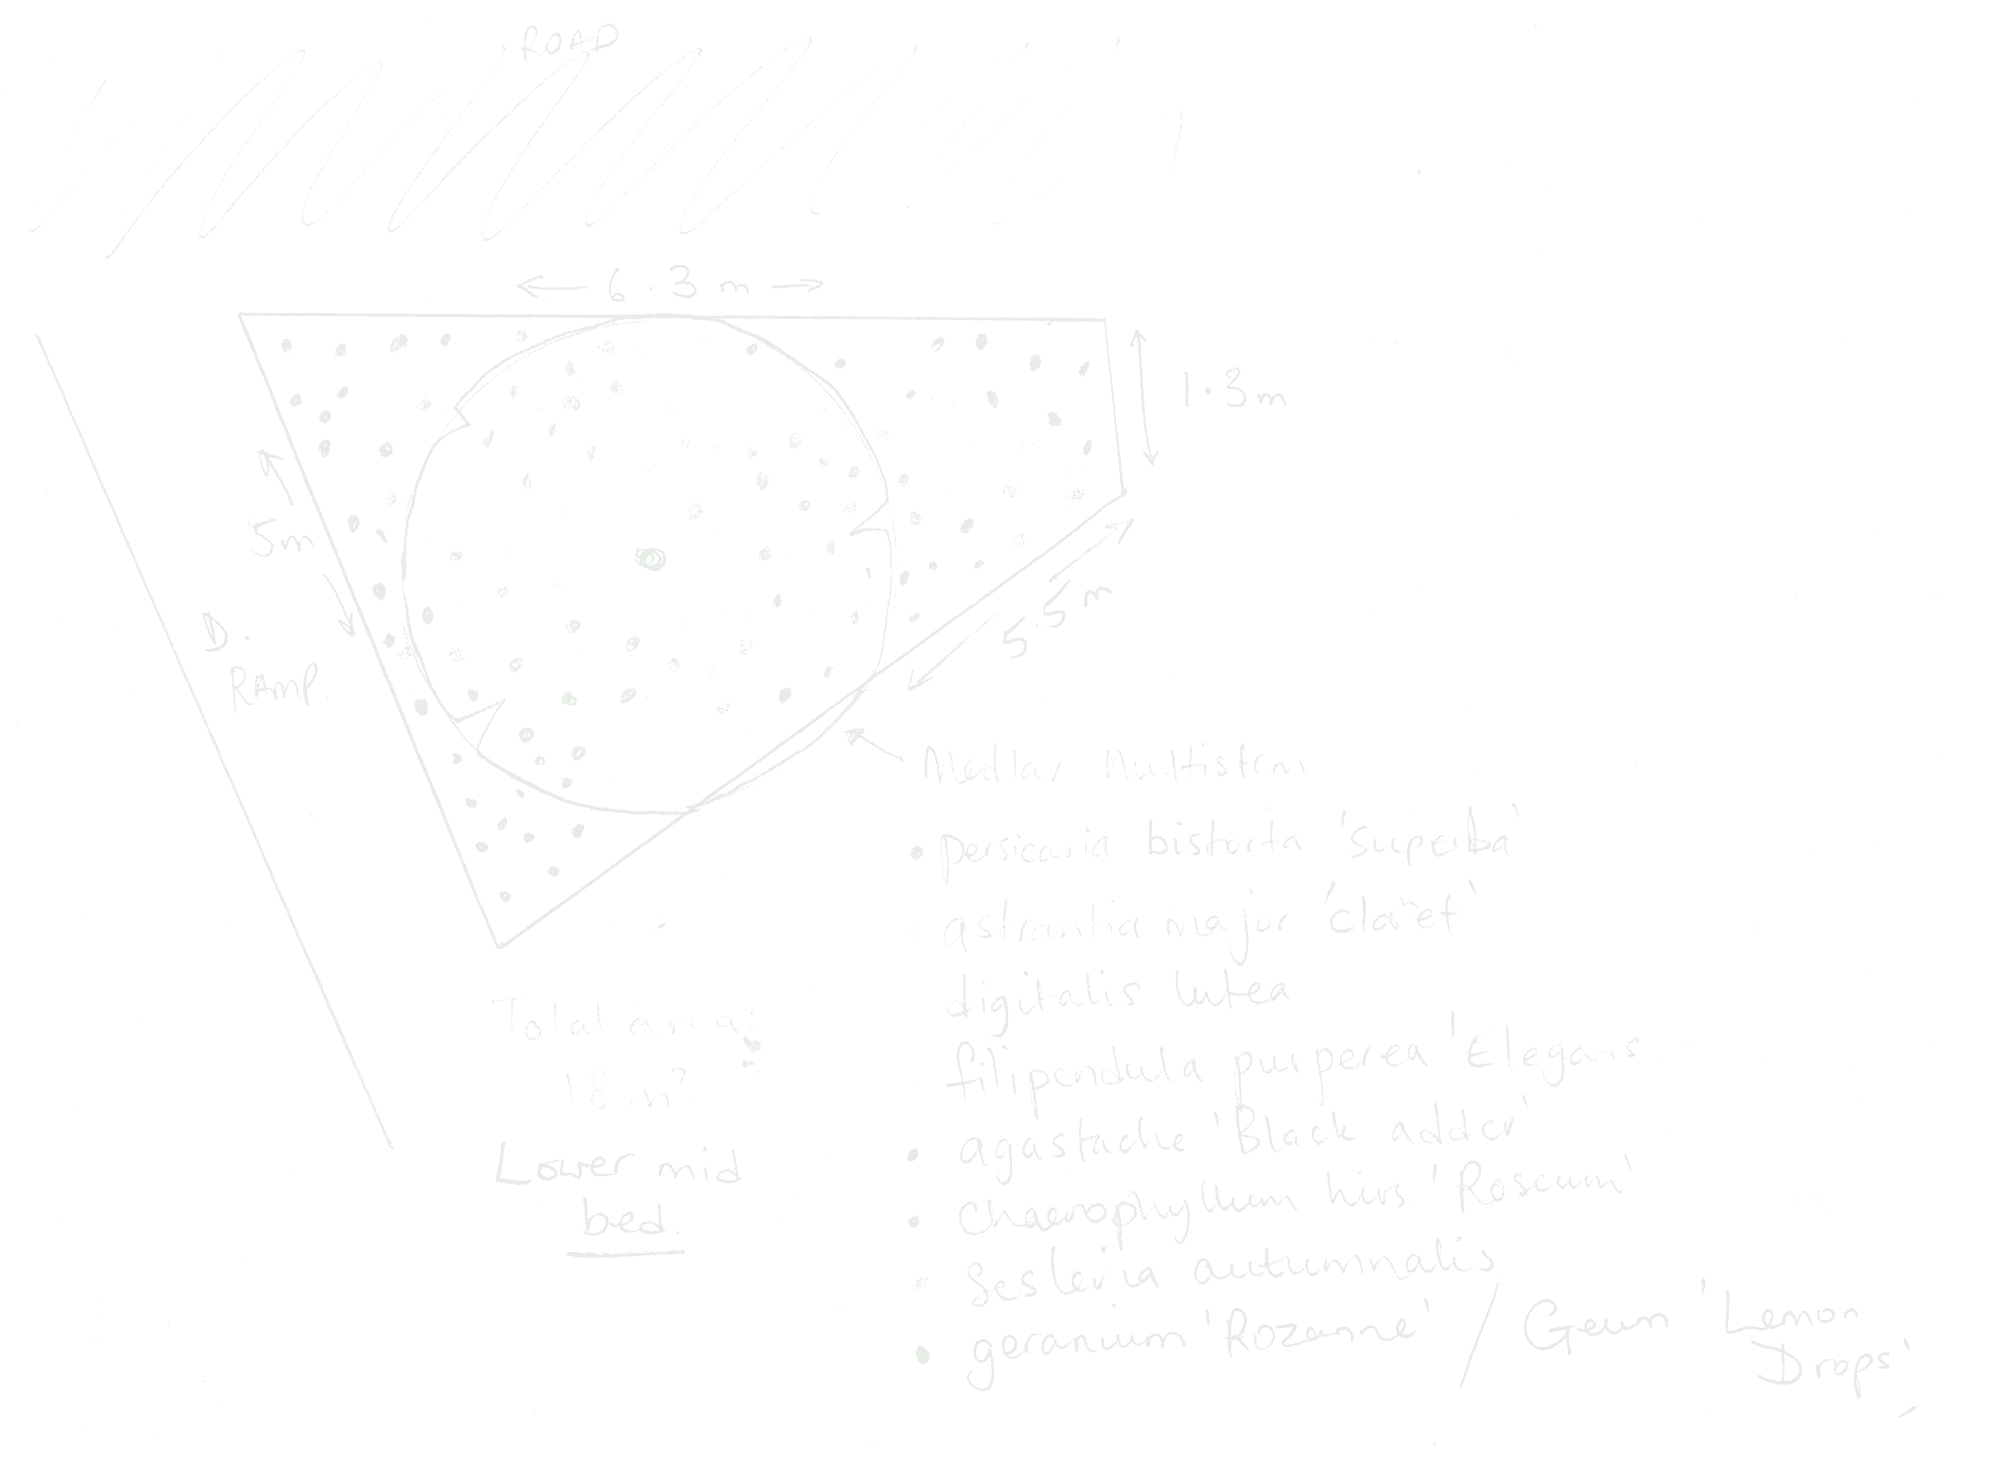 ROAD
6.3m
1.3m
5m
5.5m
D.
RAMP.
Medlar Multistem
persicaria bistorta 'Superba'
astrantia major 'claret'
digitalis lutea
filipendula purperea 'Elegans
agastache 'Black adder'
Chaerophyllum hirs 'Roseum'
Sesleria autumnalis
geranium 'Rozanne' / Geum 'Lemon
Drops'
Total area:
18m²
Lower mid
bed.